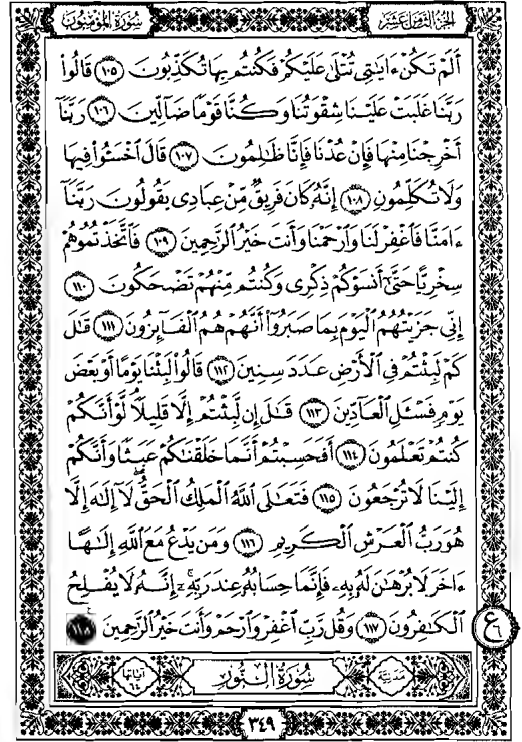 الجزء الثامن عشر
سورة المؤمنون
أَلَمْ تَكُنْ ءَايَٰتِى تُتْلَىٰ عَلَيْكُمْ فَكُنتُم بِهَا تُكَذِّبُونَ ١٠٥ قَالُوا۟
رَبَّنَا غَلَبَتْ عَلَيْنَا شِقْوَتُنَا وَكُنَّا قَوْمًا ضَآلِّينَ ١٠٦ رَبَّنَآ
أَخْرِجْنَا مِنْهَا فَإِنْ عُدْنَا فَإِنَّا ظَٰلِمُونَ ١٠٧ قَالَ ٱخْسَـُٔوا۟ فِيهَا
وَلَا تُكَلِّمُونِ ١٠٨ إِنَّهُۥ كَانَ فَرِيقٌ مِّنْ عِبَادِى يَقُولُونَ رَبَّنَآ
ءَامَنَّا فَٱغْفِرْ لَنَا وَٱرْحَمْنَا وَأَنتَ خَيْرُ ٱلرَّٰحِمِينَ ١٠٩ فَٱتَّخَذْتُمُوهُمْ
سِخْرِيًّا حَتَّىٰٓ أَنسَوْكُمْ ذِكْرِى وَكُنتُم مِّنْهُمْ تَضْحَكُونَ ١١٠
إِنِّى جَزَيْتُهُمُ ٱلْيَوْمَ بِمَا صَبَرُوٓا۟ أَنَّهُمْ هُمُ ٱلْفَآئِزُونَ ١١١ قَٰلَ
كَمْ لَبِثْتُمْ فِى ٱلْأَرْضِ عَدَدَ سِنِينَ ١١٢ قَالُوا۟ لَبِثْنَا يَوْمًا أَوْ بَعْضَ
يَوْمٍ فَسْـَٔلِ ٱلْعَآدِّينَ ١١٣ قَٰلَ إِن لَّبِثْتُمْ إِلَّا قَلِيلًا لَّوْ أَنَّكُمْ
كُنتُمْ تَعْلَمُونَ ١١٤ أَفَحَسِبْتُمْ أَنَّمَا خَلَقْنَٰكُمْ عَبَثًا وَأَنَّكُمْ
إِلَيْنَا لَا تُرْجَعُونَ ١١٥ فَتَعَٰلَى ٱللَّهُ ٱلْمَلِكُ ٱلْحَقُّ لَآ إِلَٰهَ إِلَّا
هُوَ رَبُّ ٱلْعَرْشِ ٱلْكَرِيمِ ١١٦ وَمَن يَدْعُ مَعَ ٱللَّهِ إِلَٰهًا
ءَاخَرَ لَا بُرْهَٰنَ لَهُۥ بِهِۦ فَإِنَّمَا حِسَابُهُۥ عِندَ رَبِّهِۦٓ إِنَّهُۥ لَا يُفْلِحُ
ٱلْكَٰفِرُونَ ١١٧ وَقُل رَّبِّ ٱغْفِرْ وَٱرْحَمْ وَأَنتَ خَيْرُ ٱلرَّٰحِمِينَ ١١٨
ع ٦
مدنية سُورَةُ النُّورِ آياتها
٣٤٩